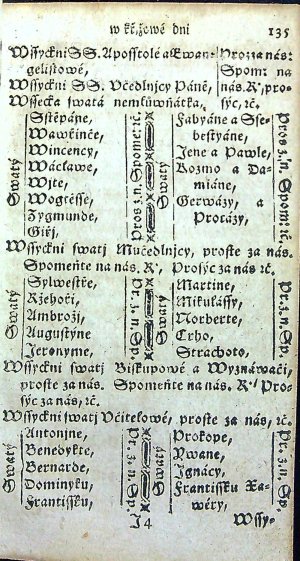 w křjžowé dni 135
Wssyckni SS. Aposstolé a Ewan- Pros za nás:
gelistowé, Spom: na
Wssyckni SS. Včedlnjcy Páně, nás. R', pro-
Wssecka swatá nemluwňátka, syc, ꝛč.
Swatý
Sstěpáne,
Wawřinče,
Wincency,
Wáclawe,
Wjte,
Wogtěsse,
Zygmunde,
Giřj,
Pros z. n. Spom: ꝛč.
Swatý
Fabyáne a Sse-
bestyáne,
Jene a Pawle,
Kozmo a Da-
miáne,
Gerwázy, a
Protázy,
Pros z. n. Spom: ꝛč.
Wssyckni swatj Mučedlnjcy, proste za nás.
Spomeňte na nás. R', Prosyc za nás ꝛč.
Swatý
Sylwestře,
Ržehoři,
Ambroži,
Augustýne
Jeronyme,
Pr. z. n. Sp.
Swatý
Martine,
Mikulássy,
Norberte,
Crho,
Strachoto,
Pr. z. n. Sp.
Wssyckni swatj Biskupowé a Wyznáwači,
proste za nás. Spomeňte na nás. R'/ Pro-
syc za nás, ꝛč.
Wssyckni swatj Včitelowé, proste za nás, ꝛč.
Swatý
Antonjne,
Benedykte,
Bernarde,
Dominyku,
Frantissku,
Pr. z. n. Sp.
Swatý
Prokope,
Ywane,
Jgnácy,
Frantissku Xa-
wéry,
Pr. z. n. Sp.
J 4 Wssy-